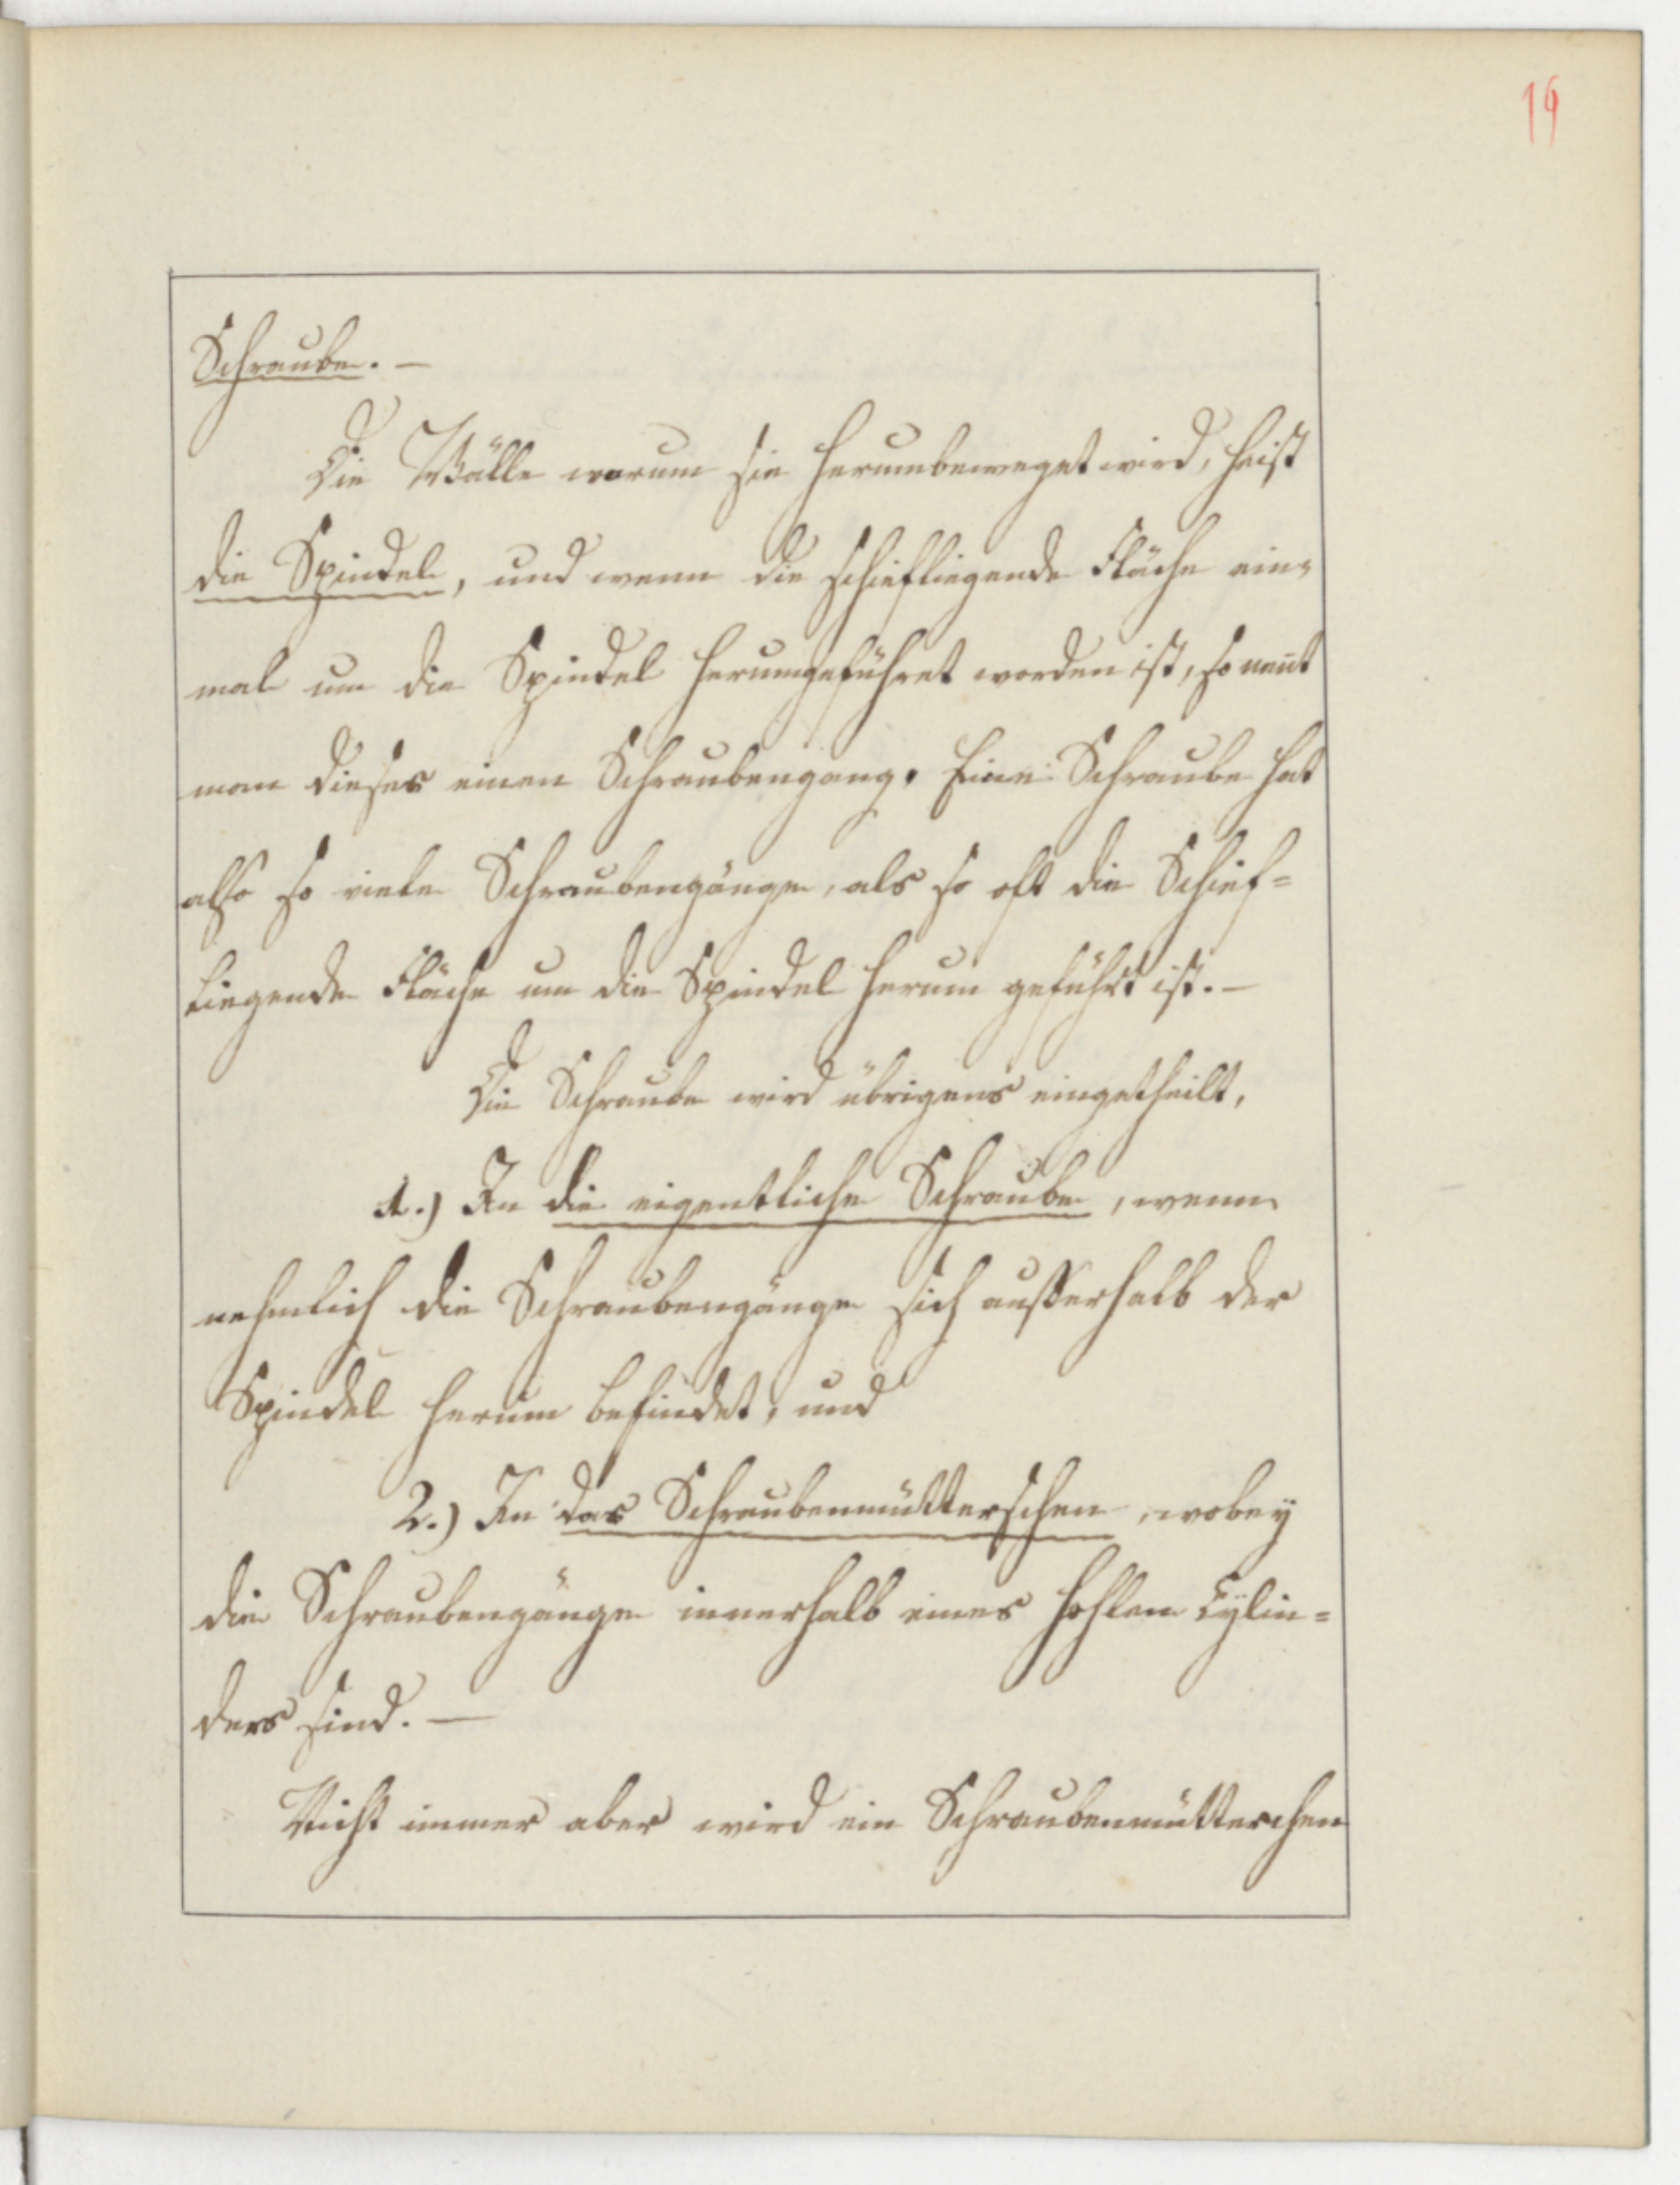 19
Schraube. —
Die Wälle warum sie herumbeweget wird, heist
die Spindel, und wenn die schiefliegende Fläche ein-
mal um die Spindel herumgeführet worden ist, so nen̄t
man dieses einen Schraubengang. Eine Schraube hat
also so viele Schraubengänge, als so oft die Schief=
liegende Fläche um die Spindel herum geführt ist. —
Die Schraube wird übrigens eingetheilt,
1.) In die eigentliche Schraube, wenn
nehmlich die Schraubengänge sich ausserhalb der
Spindel herum befindet, und
2.) In das Schraubenmütterchen, wobey
die Schraubengänge innerhalb eines hohlen Cylin=
ders sind. —
Nicht immer aber wird ein Schraubenmütterchen